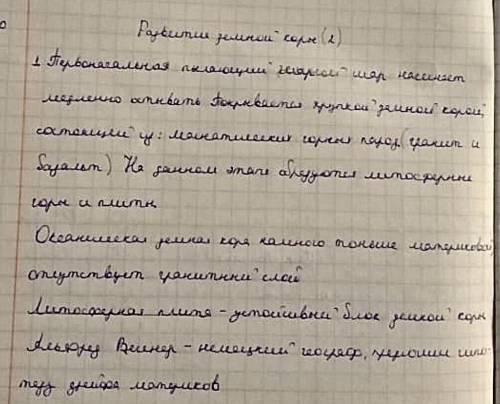 Развитие земной коры (2)
1 Первоначальная пылающий жаркой шар начинает
медленно остывать Покрывается хрупкой земной корой,
состоящий из: магматических горных пород (гранит и
базальт) На данном этапе образуются литосферные
горы и плиты
Океаническая земная кора намного тоньше материковой,
отсутствует гранитный слой
Литосферная плита - устойчивый блок земной коры
Альфред Вегенер - немецкий географ, предложил гипо-
тезу дрейфа материков